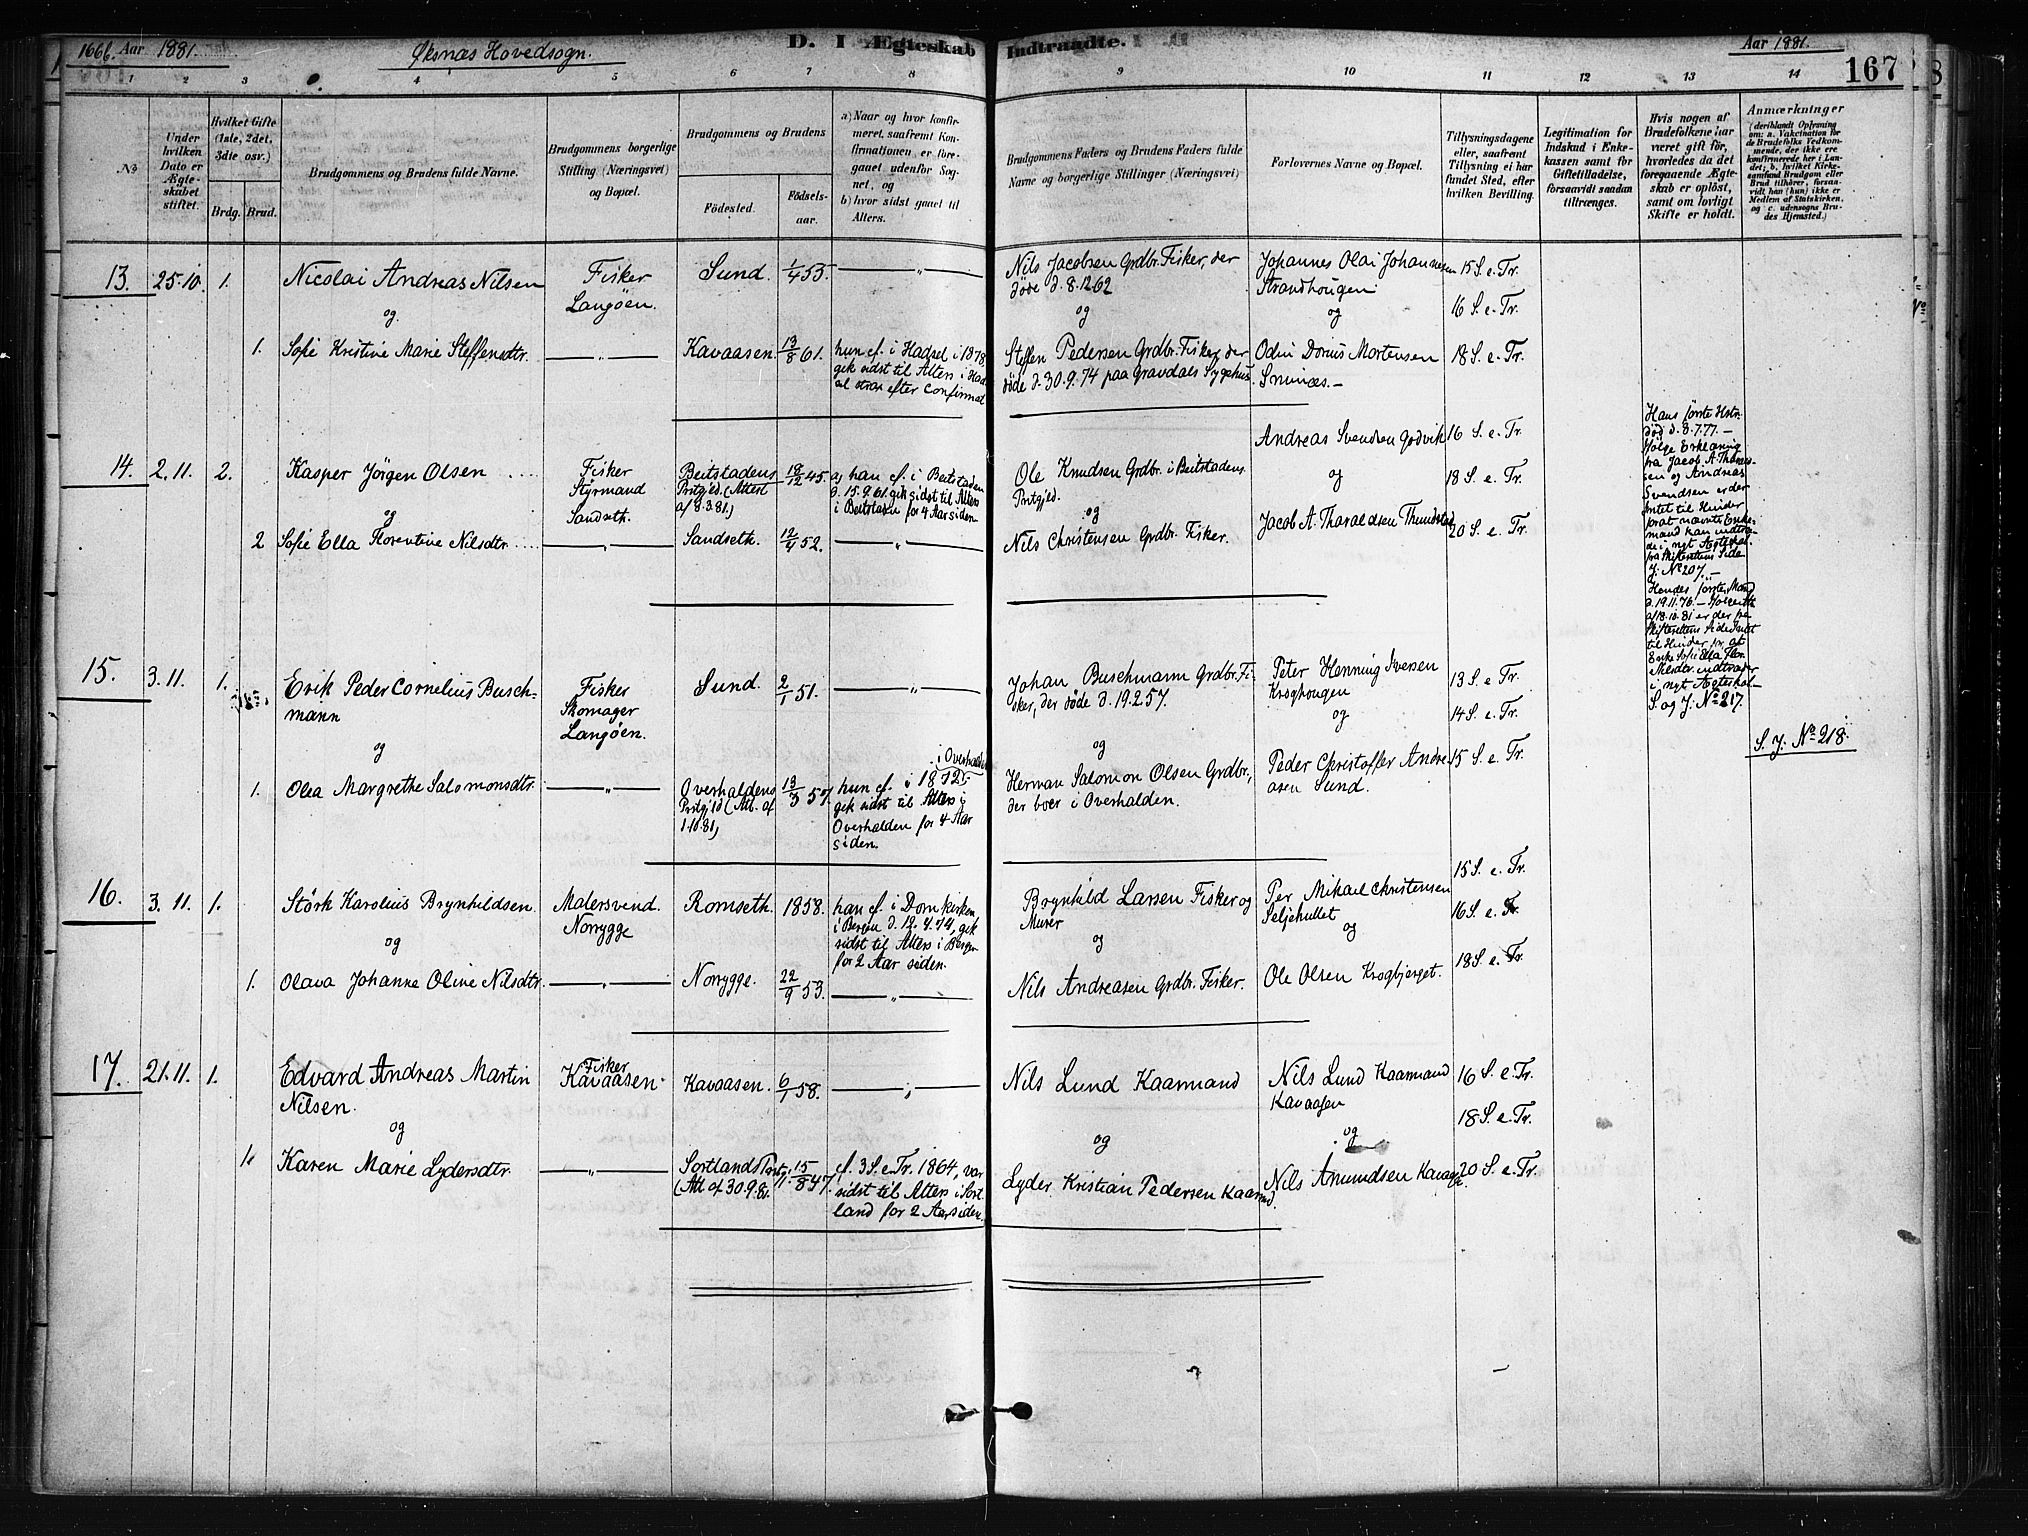 166b. Aar 1881. Øksnæs Hovedsogn. D. I Ægteskab Indtraadte. Aar 1881. 167
1 2 3 4 5 6 7 8 9 10 11 12 13 14
No
Under hvilken Dato er Ægteskabet stiftet.
Hvilket Gifte (1ste, 2det, 3die osv.)
Brdg. Brud.
Brudgommens og Brudens fulde Navne.
Brudgommens borgerlige Stilling (Næringsvei) og Bopæl.
Brudgommens og Brudens
Fødested. Fødselsaar.
a) Naar og hvor konfirmeret, saafremt Konfirmationen er foregaaet udenfor Sognet, og
b) hvor sidst gaaet til Alters.
Brudgommens Faders og Brudens Faders fulde Navne og borgerlige Stillinger (Næringsvei)
Forlovernes Navne og Bopæl.
Tillysningsdagene eller, saafremt Tillysning ei har fundet Sted, efter hvilken Bevilling.
Legitimation for Indskud i Enkekassen samt for Giftetilladelse, forsaavidt saadan tiltrænges.
Hvis nogen af Brudefolkene har været gift før, hvorledes da det foregaaende Ægteskab er opløst, samt om lovligt Skifte er holdt.
Anmærkninger (deriblandt Oplysning om: a. Vakcination for de Brudefolks Vedkommende, der ikke ere konfirmerede her i Landet; b. hvilket Kirkesamfund Brudgom eller Brud tilhører, forsaavidt han (hun) ikke er Medlem af Statskirken, og c. udensogns Brudes Hjemsted.)
13. 25.10. 1. Nicolai Andreas Nilsen
Fisker
Langøen.
Sund. 1/4 55. — „ —
Nils Jacobsen Grdbr. Fisker, der
døde d. 8.12 62
Johannes Olai Johannesen
Strandhougen
15 S. e. Tr.
16 S. e. Tr.
og
og
og
1. Sofie Kristine Marie Steffensdtr. — „ — Kavaasen. 13/8 61.
hun cf. i Hadsel i 1878
gik sidst til Alters i Had-
sel strax efter Confirmat
Steffen Pedersen Grdbr. Fisker, der
døde d. 30.9.74 paa Gravdals Sygehus.
Odin Dorius Mortensen
18 S. e. Tr.
14. 2.11. 2. Kasper Jörgen Olsen
Fisker
Styrmand
Sandseth.
Beitstadens
Prstgjed. (Attest
af 8.3.81.)
18/12 45.
a) han cf. i Beitstaden
d. 15.9.61. gik sidst til Alters
i Beitstaden for 4 Aar siden.
Ole Knudsen Grdbr. i Beitstadens
Prstgjed.
Andreas Svendsen Godvik
16 S. e. Tr.
18 S. e. Tr.
og
og
og
2 Sofie Ella Florentine Nilsdtr. — „ — Sandseth. 12/4 52. — „ —
Nils Christensen Grdbr. Fisker.
Jacob A. Tharaldsen Thundstad
20 S. e. Tr.
Hans første Hstr.
død d. 8.7.77. —
Ifølge Erklæring
fra Jacob A. Tharald-
sen og Andreas
Svendsen er der
Intet til Hinder
for at nævnte Enke-
mand kan indtræ-
de i nyt Ægteskab
fra Skifterettens Side
J: No 207. —
Hendes første Mand
d. 19.11.76. —
af 18.10.81 er der fra
Skifterettens Side Intet
til Hinder for at
Enke Sofie Ella Flor.
indtræder
i nyt Ægteskab —
S. og J: No 217.
15. 3.11. 1. Erik Peder Cornelius Busch-
mann
Fisker
Skomager
Langøen.
Sund. 2/1 51. — „ —
Johan Buschmann Grdbr. Fi-
sker, der døde d. 19.2.57.
Peter Henning Iversen
Kroghougen
13 S. e. Tr.
14 S. e. Tr.
S. J: No 218.
og
og
og
1. Olea Margrethe Salomonsdtr. — „ —
Overhaldens
Prstgjeld (Att. af
1.10.81)
13/3 57.
i Overhalden
hun cf. i 1872
gik sidst til Alters i
Overhalden for 4 Aar
siden.
Herman Salomon Olsen Grdbr.,
der boer i Overhalden.
Peder Christoffer Andre-
asen Sund.
15 S. e. Tr.
16. 3.11. 1. Störk Karolius Brynhildsen.
Malersvend.
Norrygge
Romseth. 1858.
han cf. i Domkirken
i Bergen d. 12.4.74, gik
sidst til Alters i Bergen
for 2 Aar siden.
Brynhild Larsen Fisker og
Murer
Per Mikael Christensen
Seljehullet
15 S. e. Tr.
16 S. e. Tr.
og
og
og
1. Olava Johanna Oline Nilsdtr. — „ — Norrygge. 22/9 53. — „ —
Nils Andreasen Grdbr. Fisker.
Ole Olsen Krogbjerget.
18 S. e. Tr.
17. 21.11. 1. Edvard Andreas Martin
Nilsen.
Fisker
Kavaasen.
Kavaasen. 6/1 58. — „ —
Nils Lund Kaarmand
Nils Lund Kaarmand
Kavaasen
16 S. e. Tr.
18 S. e. Tr.
og
og
og
1. Karen Marie Lydersdtr. — „ —
Sortlands Prstgj.
(Att. af 30.9.81.
15/8 47.
cf. 3 S. e. Tr. 1864, var
sidst til Alters i Sort-
land for 2 Aar siden.
Lyder Kristian Pedersen Kaarmd.
Nils Amundsen Kavaas.
20 S. e. Tr.